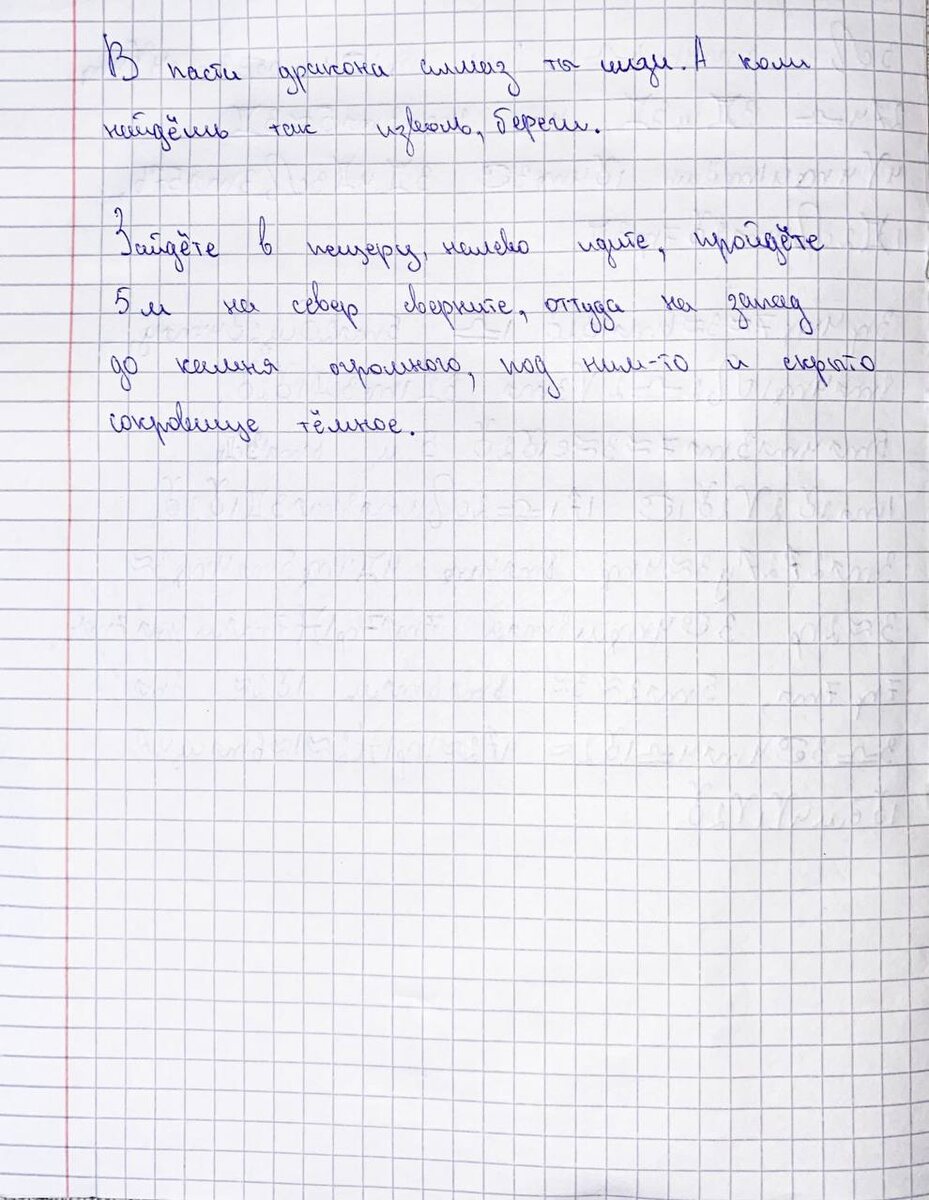 В пасти дракона алмаз ты ищи. А коли
найдёшь так изволь, береги.
Зайдёте в пещеру, налево идите, пройдёте
5м на север сверните, оттуда на запад
до камня огромного, под ним-то и скрыто
сокровище тёмное.